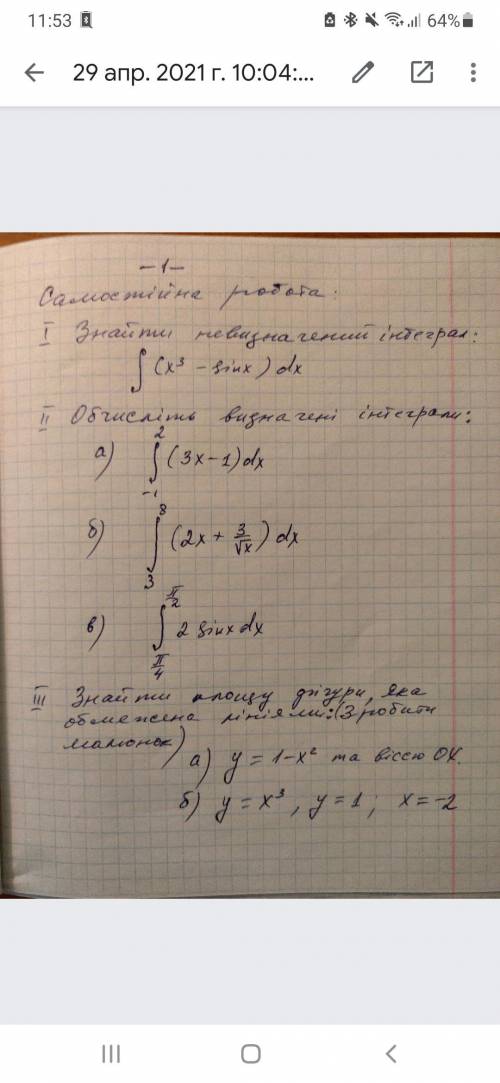 11:53 64%
29 апр. 2021 г. 10:04:...
-1-
Самостійна робота:
I Знайти невизначений інтеграл:
∫(x³ - sinx) dx
II Обчисліть визначені інтеграли:
а) ∫₋₁² (3x-1)dx
б) ∫₃⁸ (2x + 3/√x) dx
в) ∫_{π/4}^{π/2} 2 sinx dx
III Знайти площу фігури, яка
обмежена лініями: (Зробити
малюнок)
а) y = 1-x² та віссю OX.
б) y = x³, y = 1; x = -2